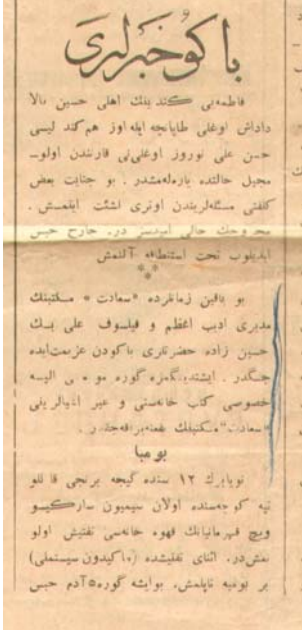 باكو خبرلری
فاطمه‌یی كندینك اهلی حسین بالا
داداش اوغلی طاپانچه ایله اوز هم كند لیسی
حسن علی نوروز اوغلی‌نی قارنندن اولو-
محیل حالتده یارەلەمشدر. بو جنایت بعض
كلفتی مسئله‌لریندن اونری اشئت ایلمش.
مجروحك حالی امیدسز در. جارح حبس
ایدیلوب تحت استنطاقه آلنمش
⁂
بو یاقین زمانلرده «سعادت» مكتبنك
مدیری ادیب اعظم و فیلسوف علی بك
حسین زاده حضرتلری باكودن عزیمت‌ایده
جكدر. ایشتدیگمزه گوره مو ی الیه
خصوصی كتب خانه‌سنی و غیر اشیالرینی
«سعادت» مكتبنك
بومبا
نویابرك ۱۲ سنده گیجه برنجی قانلو
تپه كوچه‌سنده اولان سیمیون ساركیسو
ویچ قهرمانیانك قهوه خانه‌سی تفتیش اولو
نمش‌در. اثنای تفتیشده (ماكیدون سیستملی)
بر بومبه تاپلمش. بوایشه گوره ۵ آدم حبس